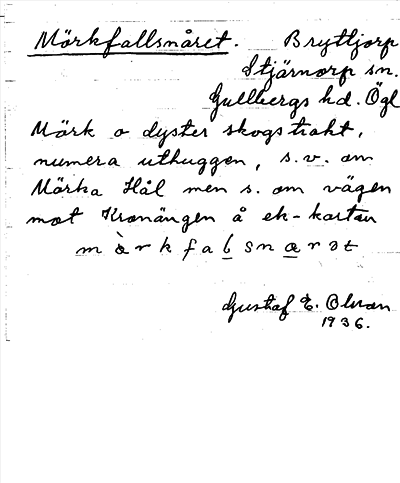 Mörkfallsnåret. Bryttjorp
Stjärnorp sn.
Gullbergs hd. Ögl
Mörk o dyster skogstrakt,
numera uthuggen, s.v. om
Mörka Hål men s. om vägen
mot Kronängen å ek-kartan
mòrkfalsnarət
Gustaf E. Olson
1936.